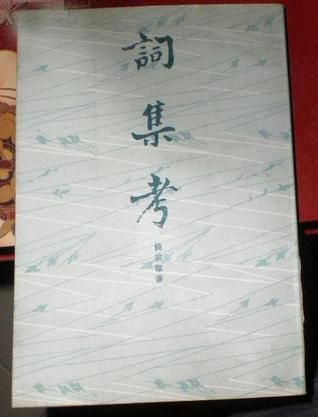 詞集考
饒宗頤著